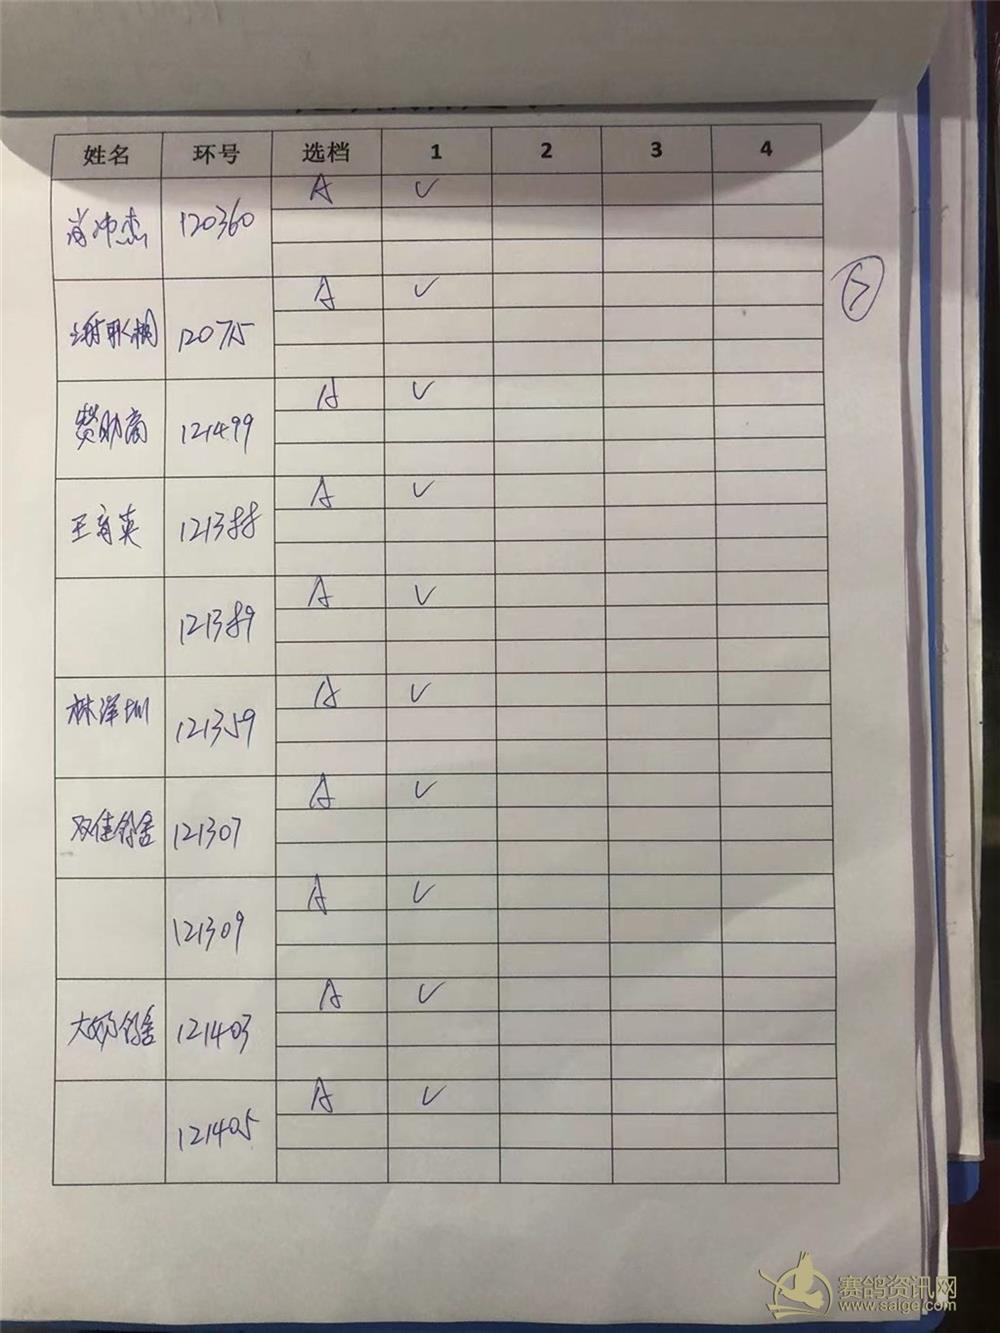 姓名 环号 选档 1 2 3 4
肖冲杰 120360 A V
120715 A V
赞助商 121499 A V
王育英 121388 A V
121389 A V
林泽圳 121359 A V
双佳鸽舍 121307 A V
121309 A V
大奶鸽舍 121403 A V
121405 A V
7
赛鸽资讯网
www.saige.com